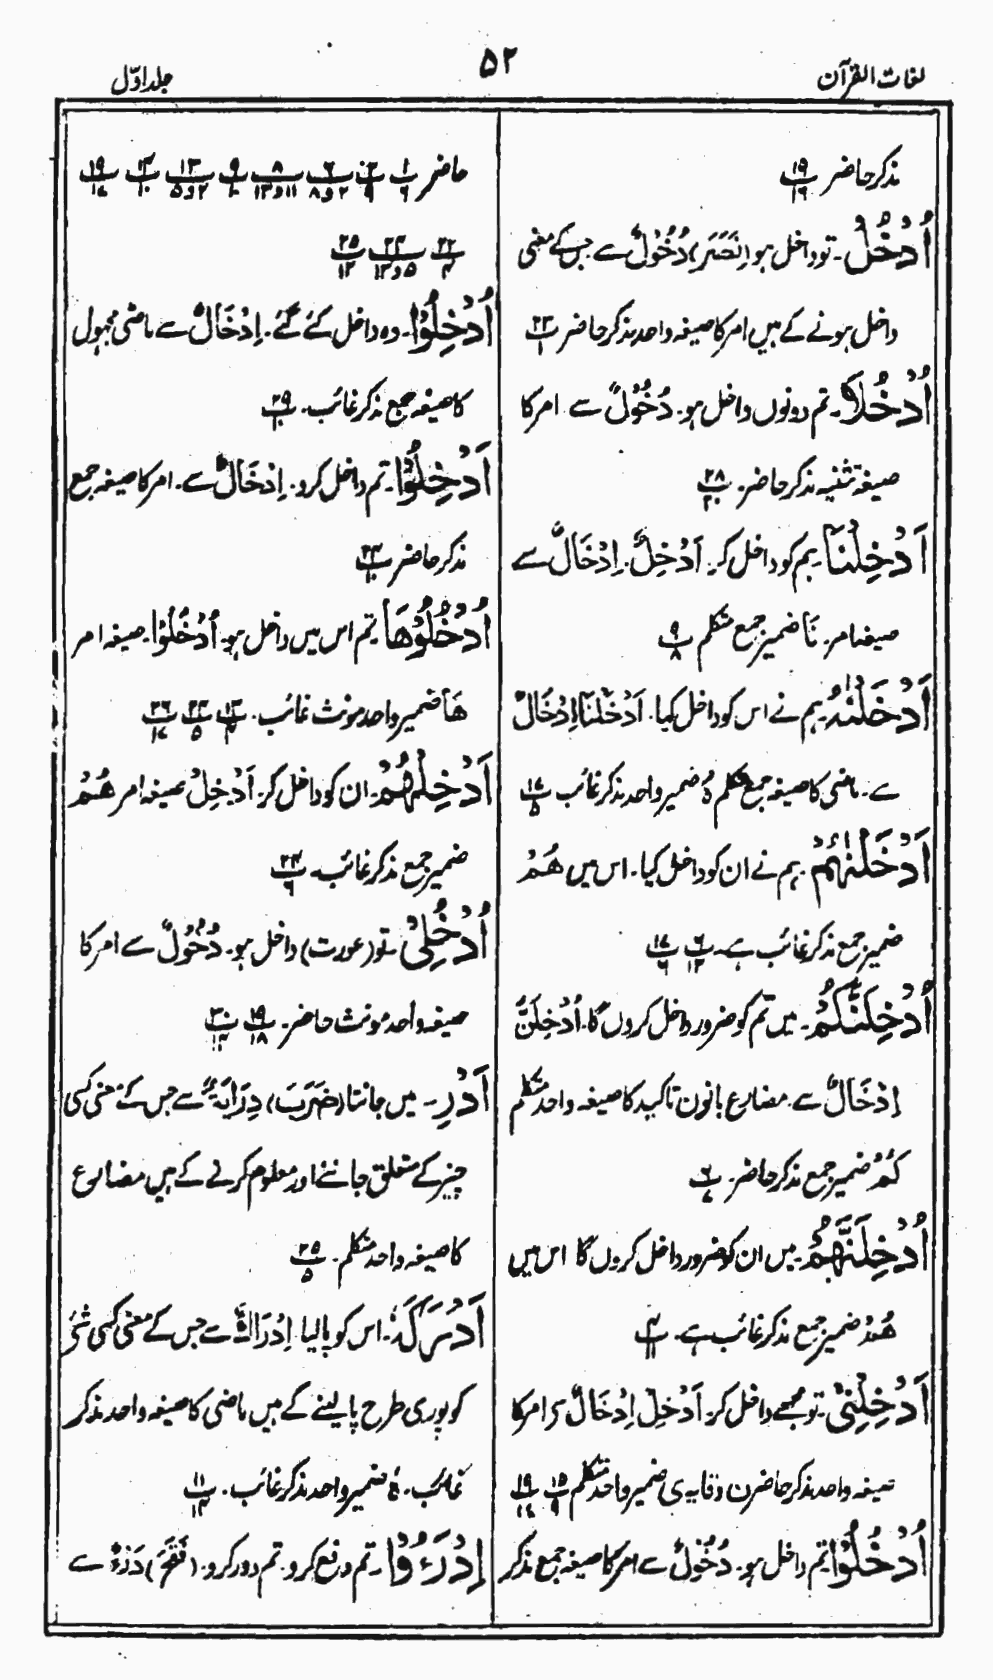 لغات القرآن
۵۲
جلد اوّل
مذکر حاضر ۱۹/۱۹
اُدْخُلْ۔ تو داخل ہو (نَصَرَ) دُخُوْلٌ سے جس کے معنی
داخل ہونے کے ہیں امر کا صیغہ واحد مذکر حاضر ۲۳/۱
اُدْخُلَا۔ تم دونوں داخل ہو۔ دُخُوْلٌ سے امر کا
صیغہ تثنیہ مذکر حاضر۔ ۲۸/۲۰
اَدْخِلْنَا۔ ہم کو داخل کر۔ اَدْخِلْ۔ اِدْخَالٌ سے
صیغہ امر۔ نَا ضمیر جمع متکلم ۹/۸
اَدْخَلْنٰهُ۔ ہم نے اس کو داخل کیا۔ اَدْخَلْنَا اِدْخَالٌ
سے۔ ماضی کا صیغہ جمع متکلم هُ ضمیر واحد مذکر غائب ۱۷/۵
اَدْخَلْنٰهُمْ۔ ہم نے ان کو داخل کیا۔ اس میں هُمْ
ضمیر جمع مذکر غائب ہے۔ ۶/۱۲ ۱۷/۶
اُدْخِلَنَّكُمْ۔ میں تم کو ضرور داخل کروں گا۔ اُدْخِلَنَّ
اِدْخَالٌ سے۔ مضارع بانون تاکید کا صیغہ واحد متکلم
كُمْ ضمیر جمع مذکر حاضر۔ ۶/۷
اُدْخِلَنَّهُمْ۔ میں ان کو ضرور داخل کروں گا اس میں
هُمْ ضمیر جمع مذکر غائب ہے۔ ۴/۱۱
اَدْخِلْنِیْ۔ تو مجھے داخل کر۔ اَدْخِلْ اِدْخَالٌ سے امر کا
صیغہ واحد مذکر حاضر ن وقایہ ی ضمیر واحد متکلم ۱۵/۹ ۱۹/۱۷
اُدْخُلُوْا۔ تم داخل ہو۔ دُخُوْلٌ سے امر کا صیغہ جمع مذکر
حاضر ۱/۶ ۲/۹ ۶/۲و۸ ۸/۱۱و۱۳ ۹/۱۰ ۱۳/۲و۵ ۱۴/۱۰ ۱۹/۱۷
۲۲/۴ ۲۴/۵و۱۲ ۲۵/۱۲
اُدْخِلُوْا۔ وہ داخل کئے گئے۔ اِدْخَالٌ سے ماضی مجہول
کا صیغہ جمع مذکر غائب۔ ۲۹/۱۰
اَدْخِلُوْا۔ تم داخل کرو۔ اِدْخَالٌ سے۔ امر کا صیغہ جمع
مذکر حاضر ۲۴/۱۰
اُدْخُلُوْهَا۔ تم اس میں داخل ہو۔ اُدْخُلُوْا۔ صیغہ امر
هَا ضمیر واحد مونث غائب۔ ۱۴/۴ ۲۴/۵ ۲۶/۱۷
اَدْخِلْهُمْ۔ ان کو داخل کر۔ اَدْخِلْ صیغہ امر هُمْ
ضمیر جمع مذکر غائب۔ ۲۴/۶
اُدْخُلِیْ۔ تو (عورت) داخل ہو۔ دُخُوْلٌ سے امر کا
صیغہ واحد مونث حاضر۔ ۱۹/۱۸ ۳۰/۱۴
اَدْرِ۔ میں جانتا (ضَرَبَ) دِرَايَةٌ سے جس کے معنی کسی
چیز کے متعلق جاننے اور معلوم کرنے کے ہیں مضارع
کا صیغہ واحد متکلم۔ ۲۵/۵
اَدْرَكَهُ۔ اس کو پالیا۔ اِدْرَاكٌ سے جس کے معنی کسی شئے
کو پوری طرح پالینے کے ہیں ماضی کا صیغہ واحد مذکر
غائب۔ هُ ضمیر واحد مذکر غائب۔ ۱۱/۱۴
اِدْرَءُوْا۔ تم دفع کرو۔ تم دور کرو۔ (فَتَحَ) دَرْءٌ سے